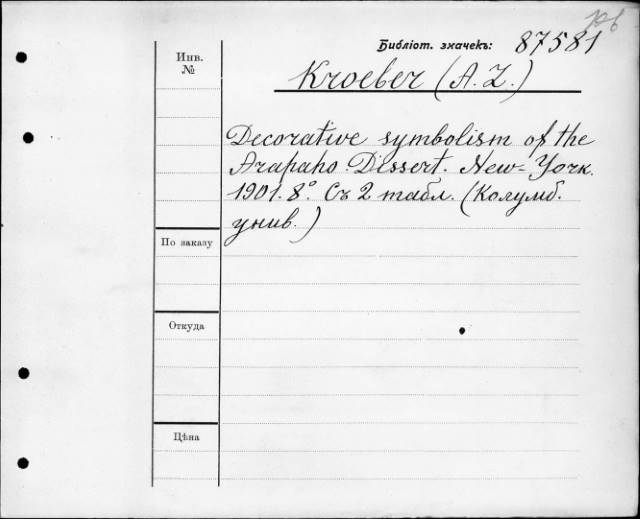 Библіот. значекъ: 87581
Инв.
№
Kroeber (A. L.)
Decorative symbolism of the
Arapaho. Dissert. New-York.
1901. 8°. Съ 2 табл. (Колумб.
унив.)
По заказу
Откуда
Цѣна